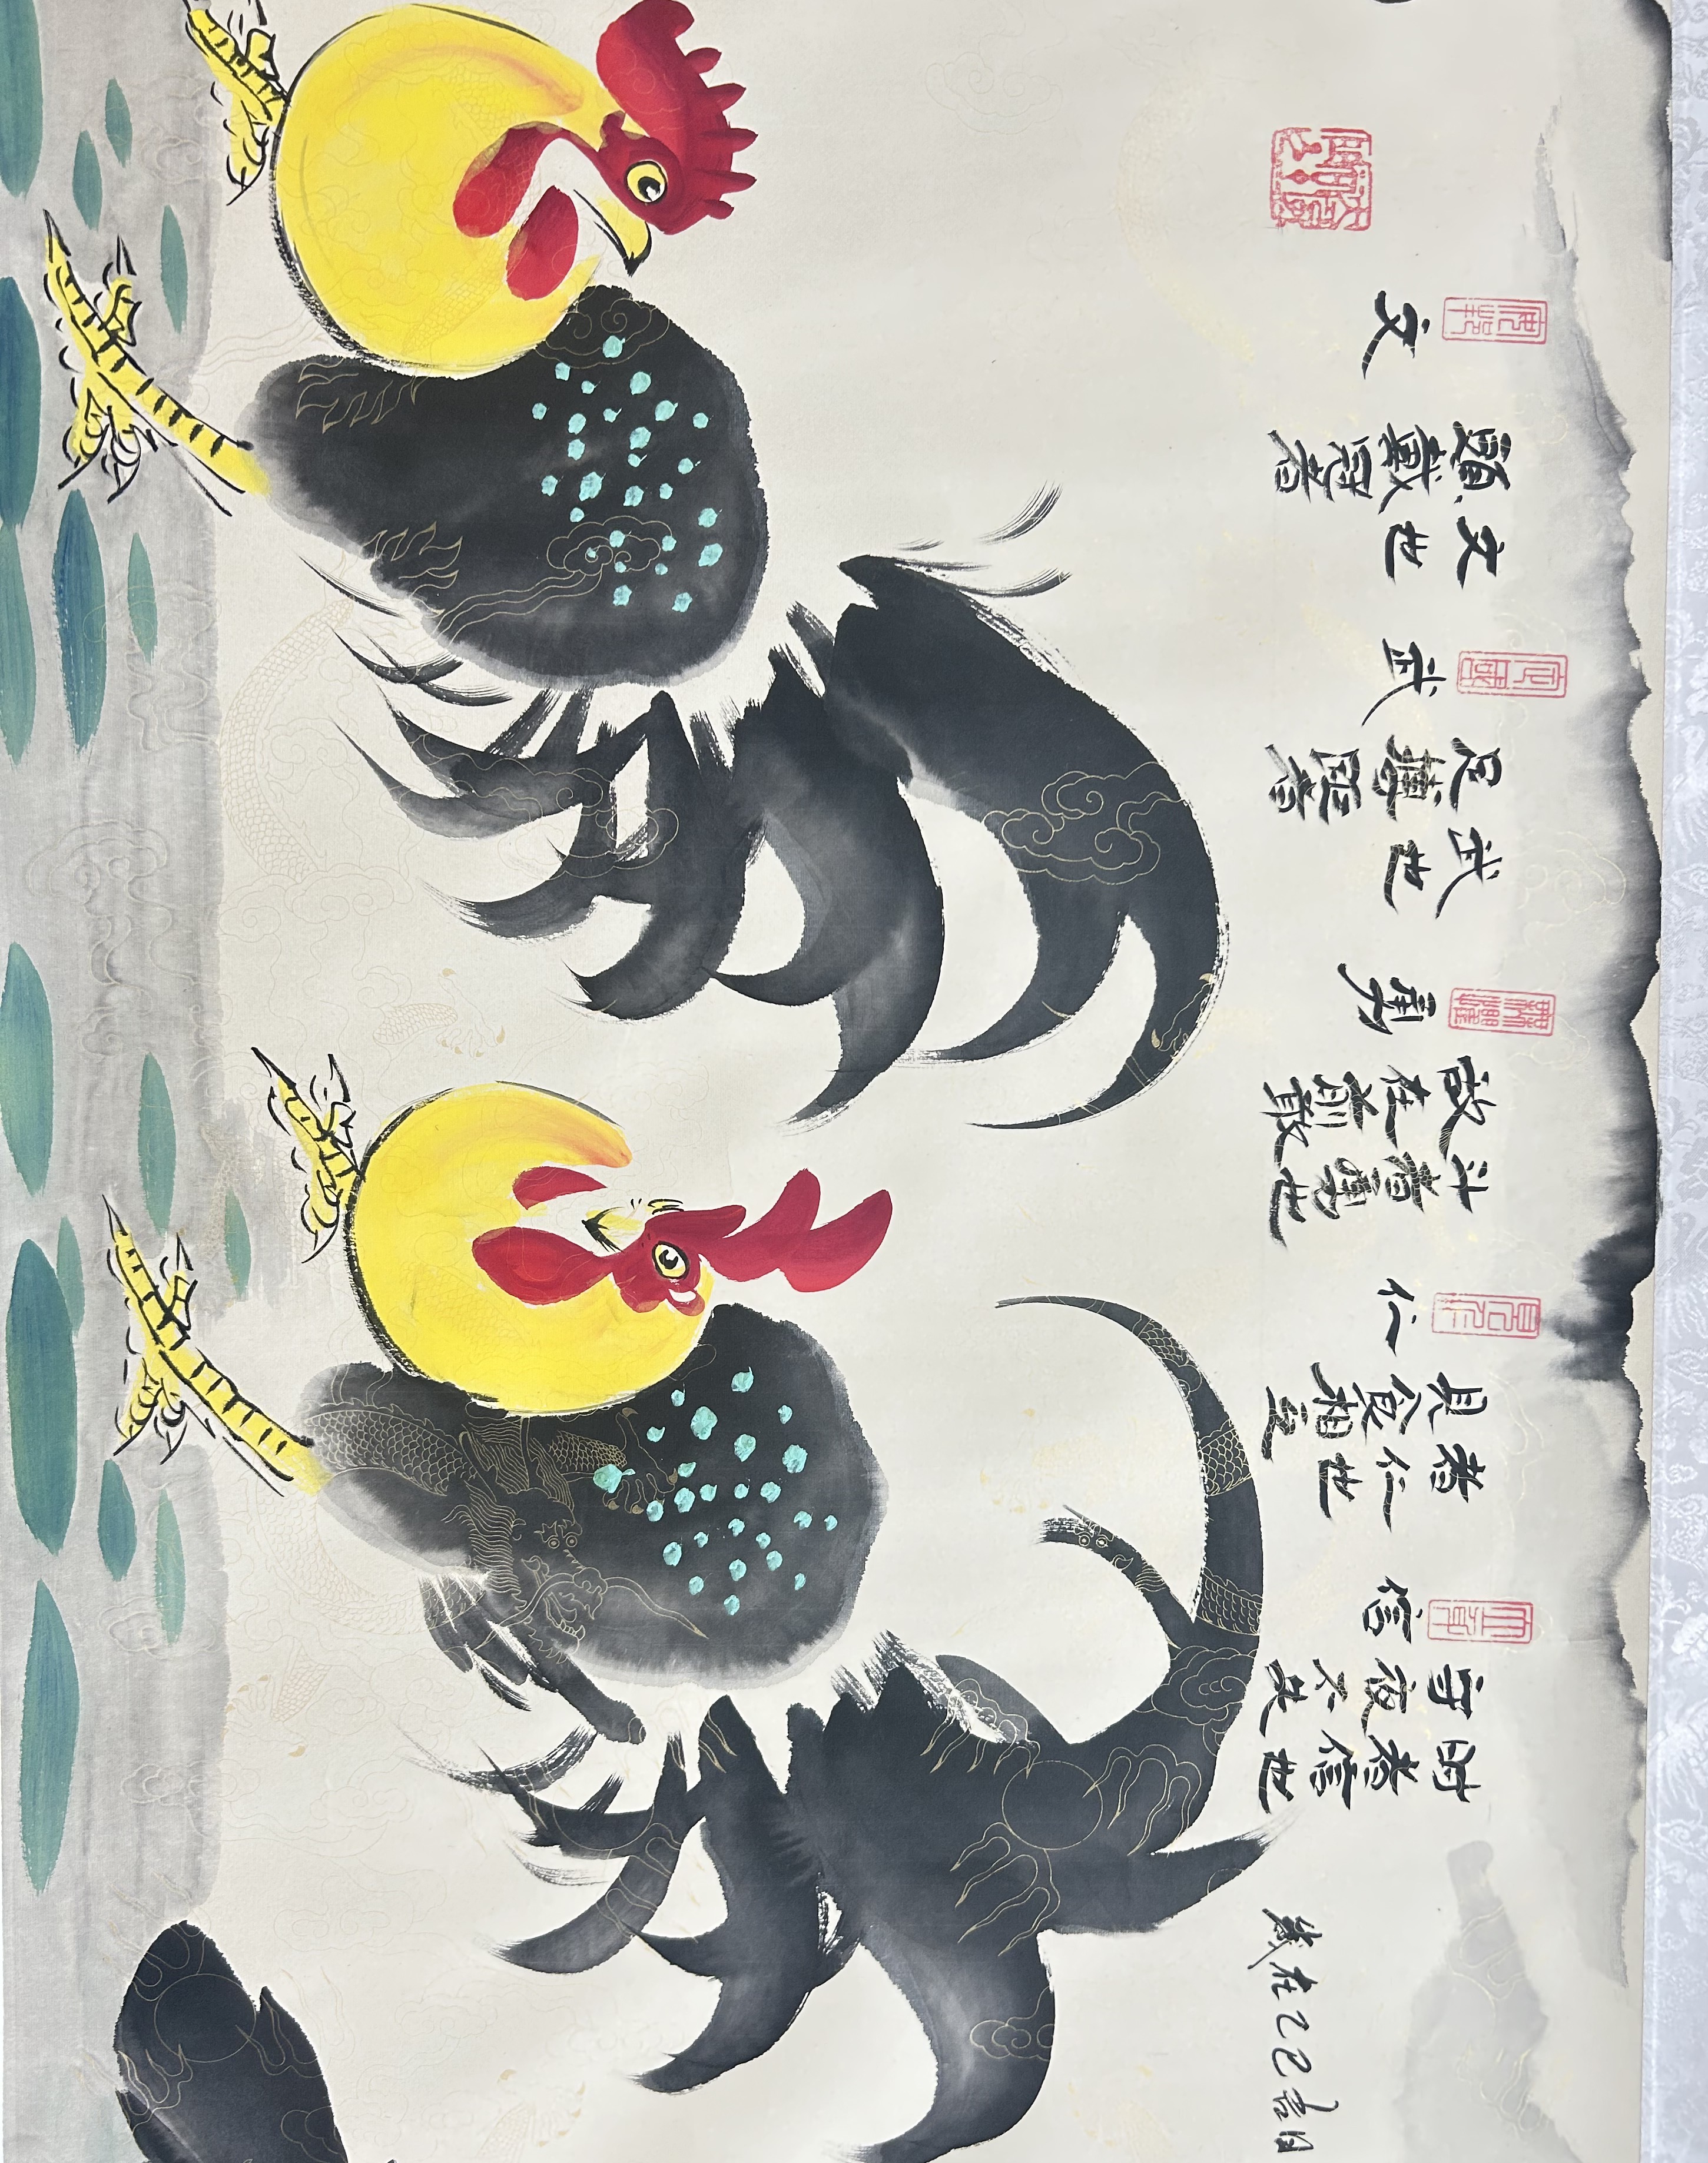 文
頭戴冠者
文也
武
足搏距者
武也
勇
敌在前敢
斗者勇也
仁
見食相互
者仁也
信
守夜不失
时者信也
歲在乙巳吉日